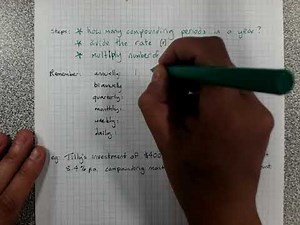 Steps: * how many compounding periods in a year?
* divide the rate (r)
* multiply number of
Remember: annually: 1
biannually
quarterly:
monthly:
weekly:
daily:
eg: Tilly's investment of $400
8.4% pa compounding mon